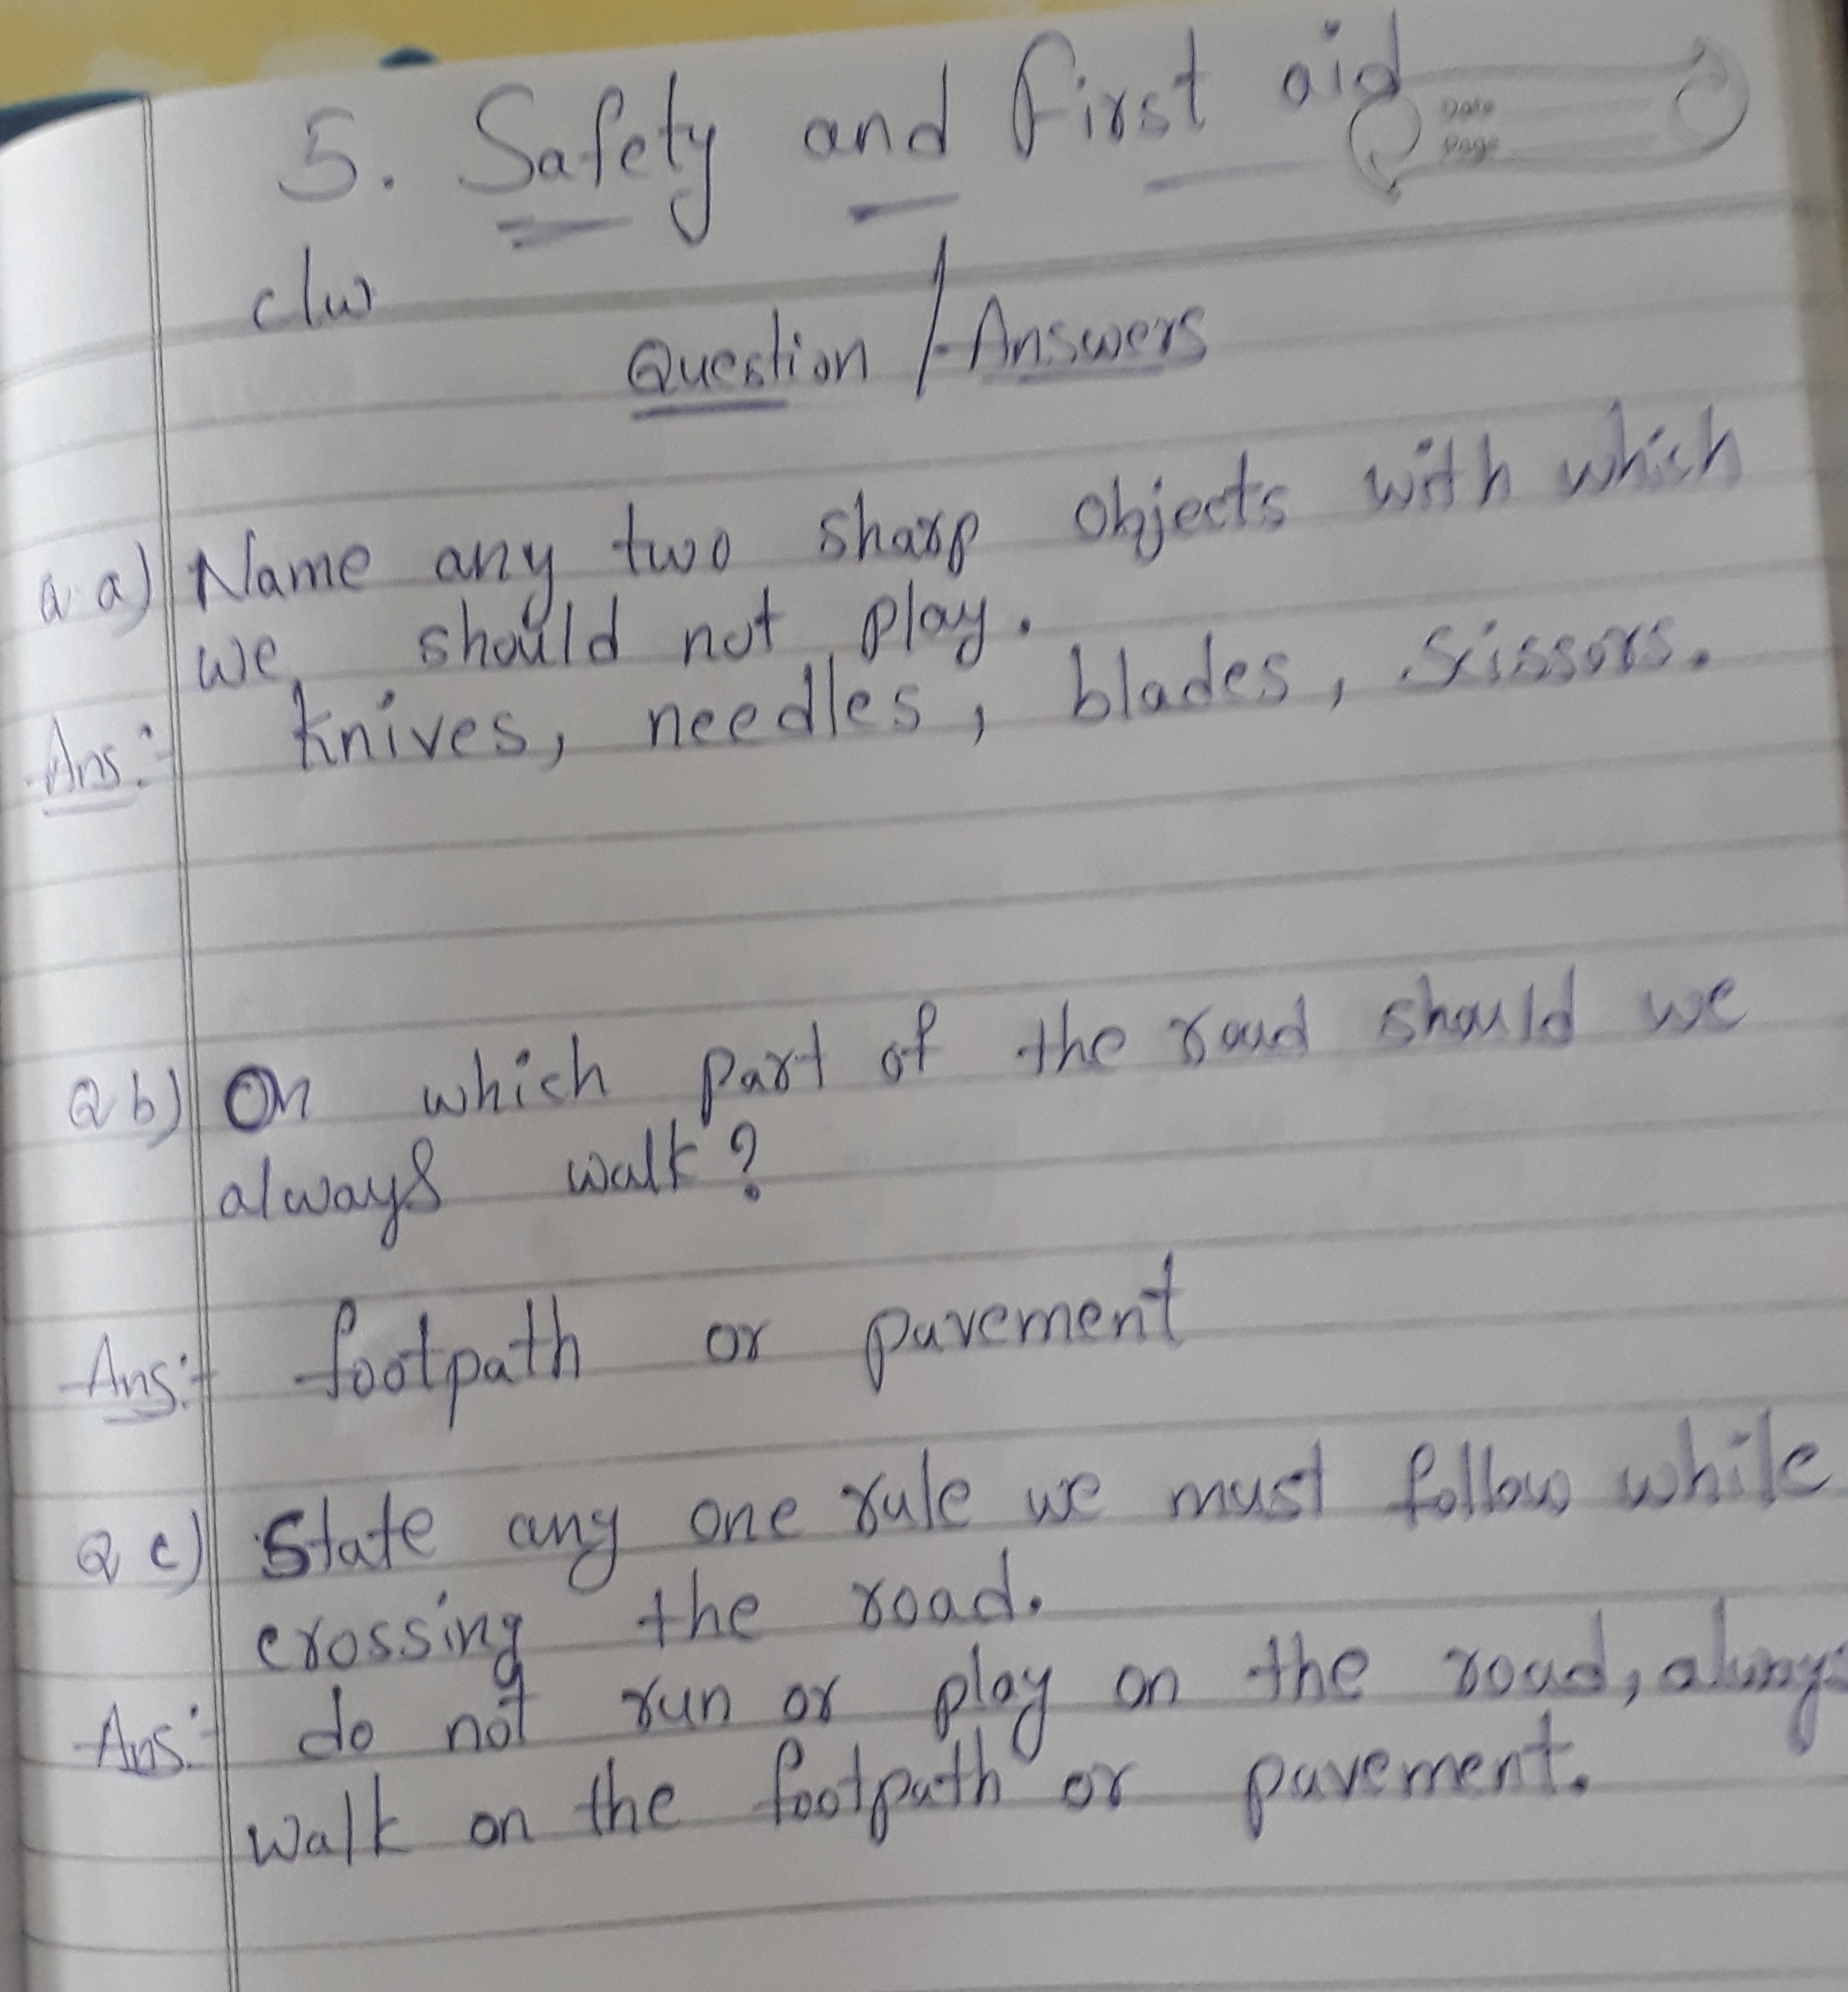 5. Safety and first aid
Date
Page
c/w
Question / Answers
Q a) Name any two sharp objects with which
we should not play.
Ans:- knives, needles, blades, scissors.
Q b) On which part of the road should we
always walk?
Ans:- footpath or pavement
Q c) State any one rule we must follow while
crossing the road.
Ans:- do not run or play on the road, always
walk on the footpath or pavement.